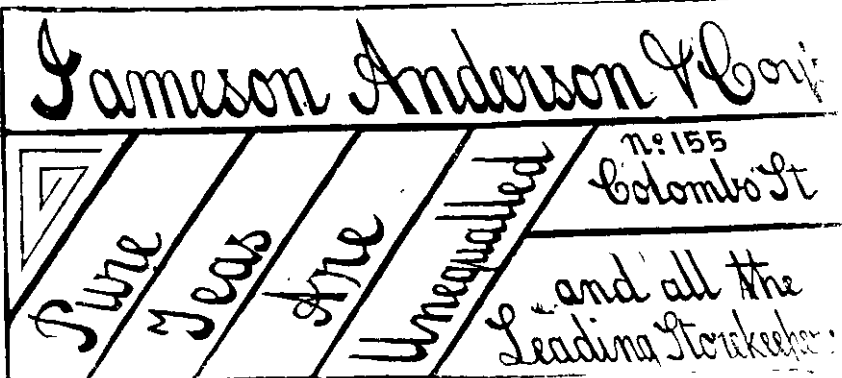 Jameson Anderson & Coy's
Pure
Teas
Are
Unequalled
No: 155
Colombo St
and all the
Leading Storekeepers